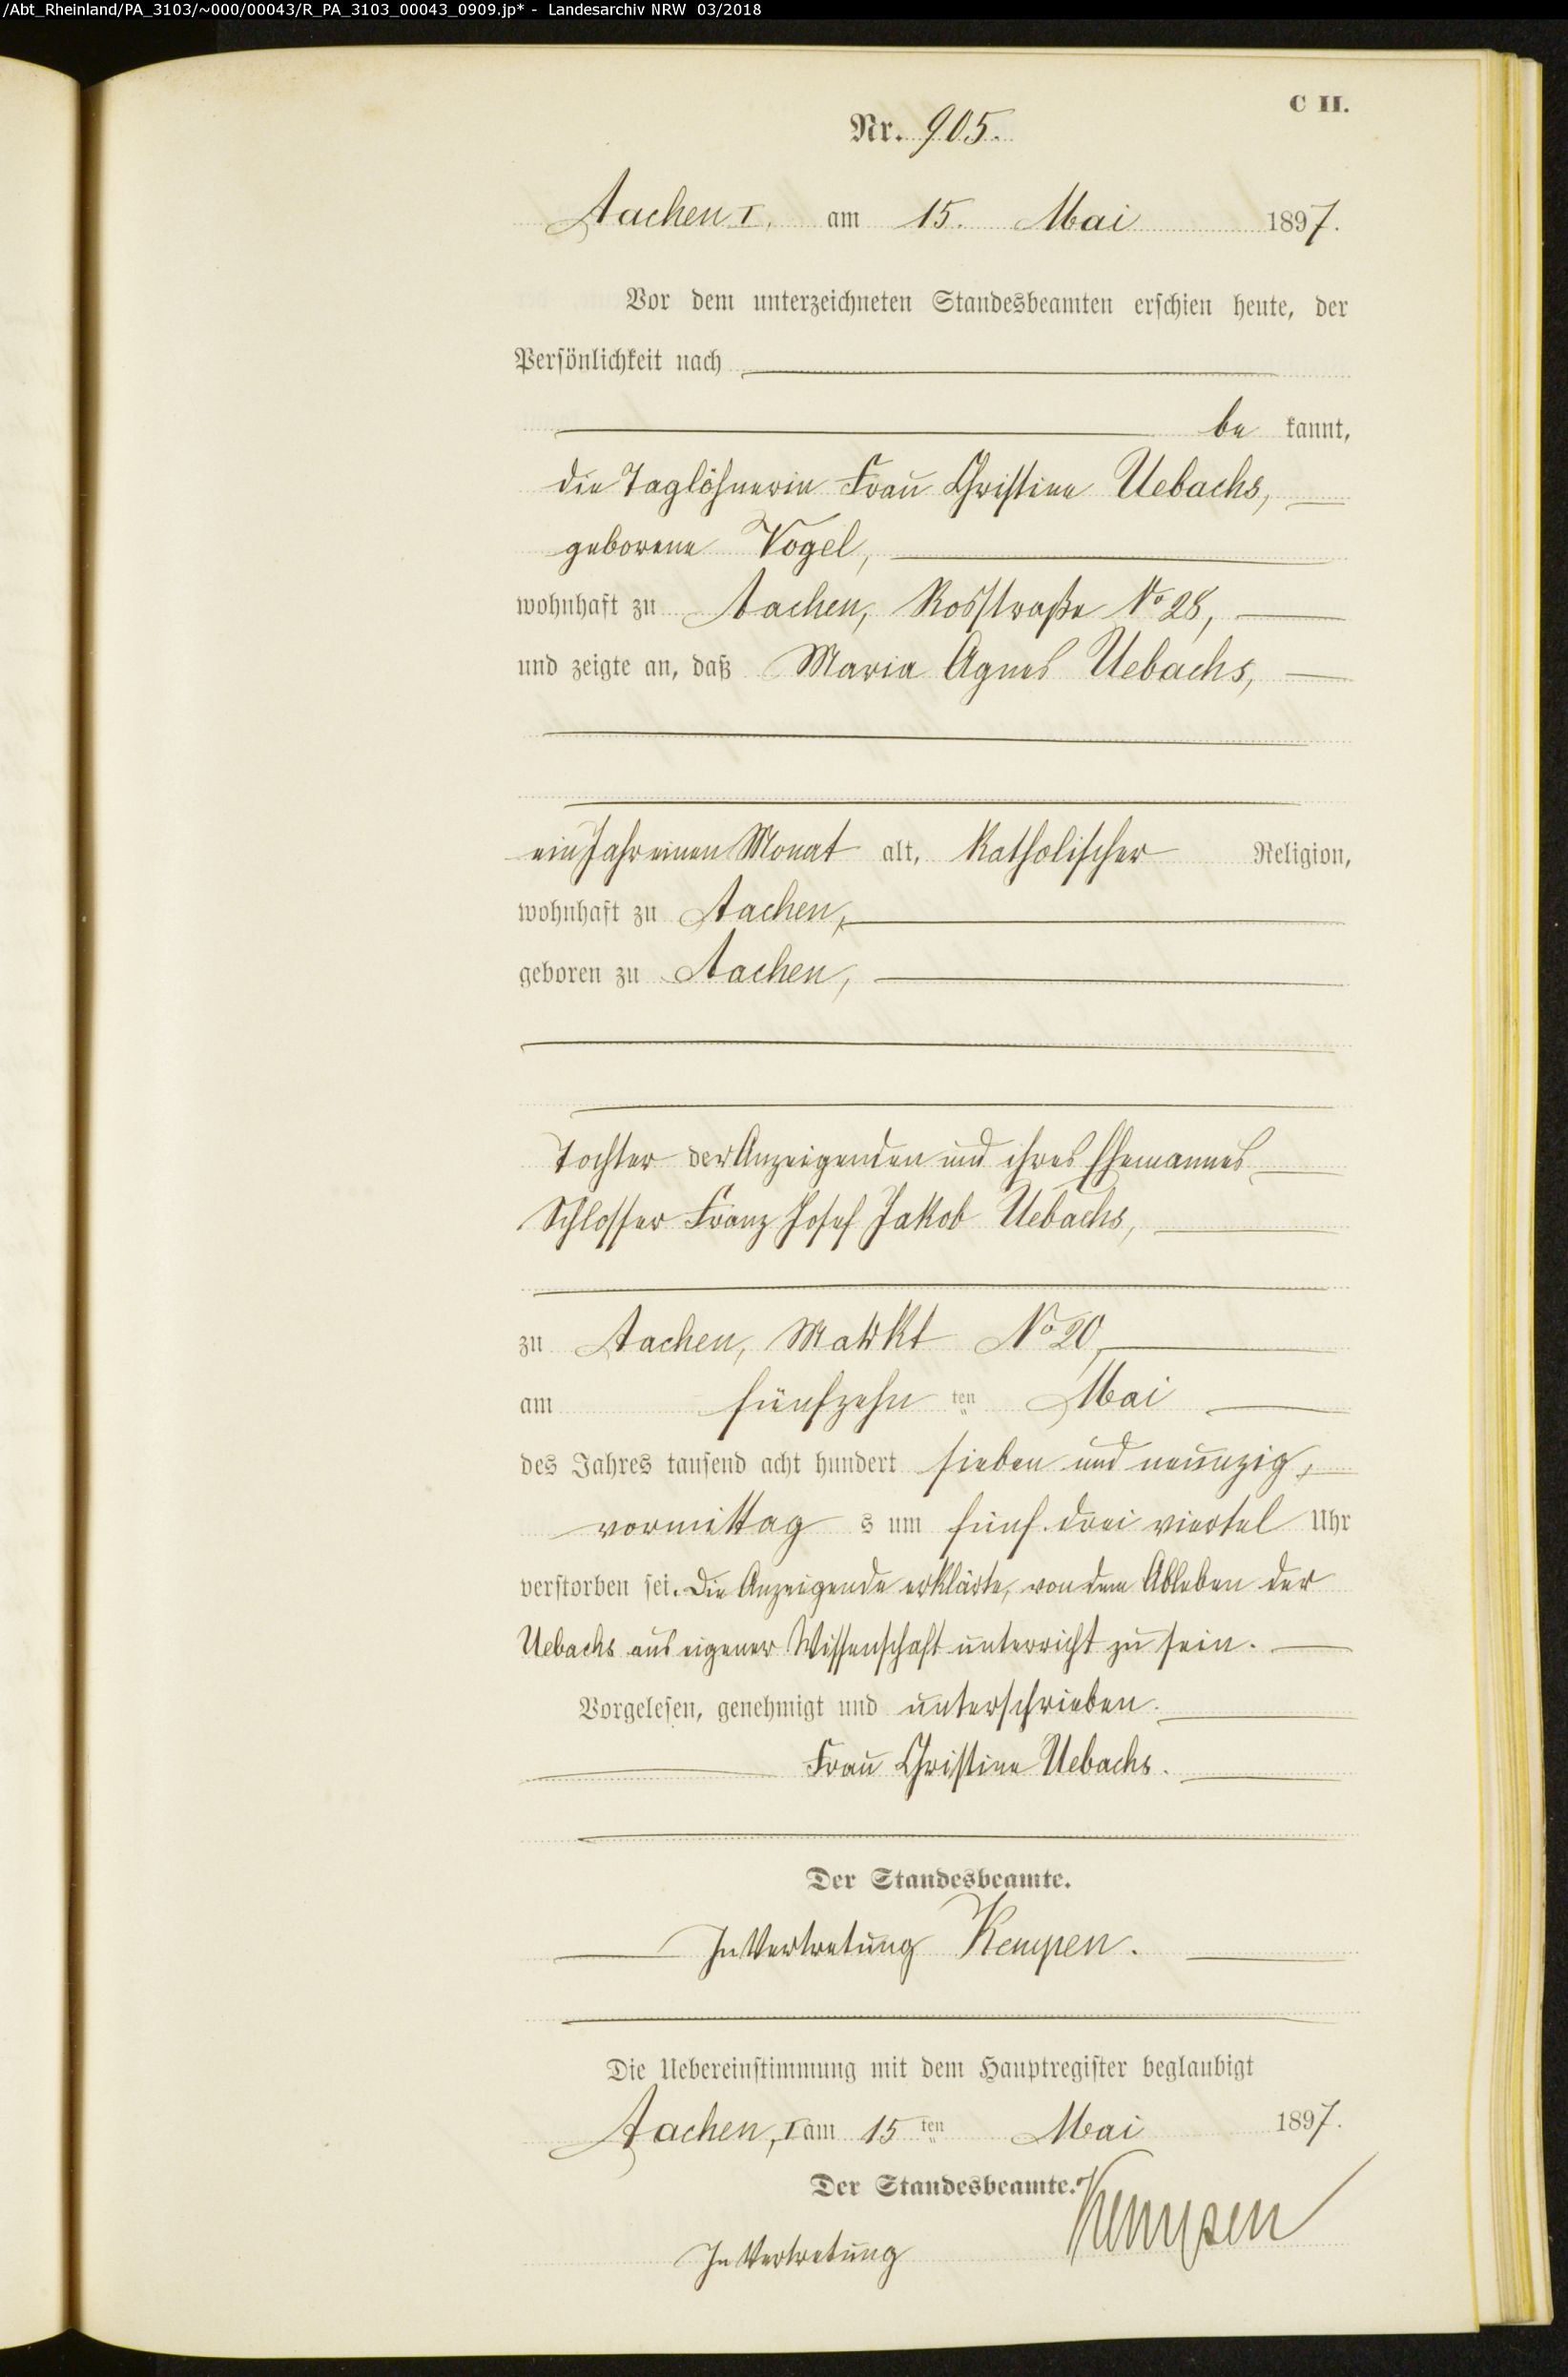 /Abt_Rheinland/PA_3103/~000/00043/R_PA_3103_00043_0909.jp* - Landesarchiv NRW 03/2018
C II.
Nr. 905.
Aachen I. am 15. Mai 1897.
Vor dem unterzeichneten Standesbeamten erschien heute, der
Persönlichkeit nach
be kannt,
die Taglöhnerin Frau Christine Uebachs,
geborene Vogel,
wohnhaft zu Aachen, Rosstraße No 28,
und zeigte an, daß Maria Agnes Uebachs,
ein Jahr einen Monat alt, katholischer Religion,
wohnhaft zu Aachen,
geboren zu Aachen,
Tochter der Anzeigenden und ihres Ehemannes
Schlosser Franz Josef Jakob Uebachs,
zu Aachen, Markt No 20,
am fünfzehn ten Mai
des Jahres tausend acht hundert sieben und neunzig,
vormittag s um fünf drei viertel Uhr
verstorben sei. Die Anzeigende erklärte, von dem Ableben der
Uebachs aus eigener Wissenschaft unterricht zu sein.
Vorgelesen, genehmigt und unterschrieben.
Frau Christine Uebachs.
Der Standesbeamte.
In Vertretung Kempen.
Die Uebereinstimmung mit dem Hauptregister beglaubigt
Aachen, I am 15 ten Mai 1897.
Der Standesbeamte.
In Vertretung Kempen